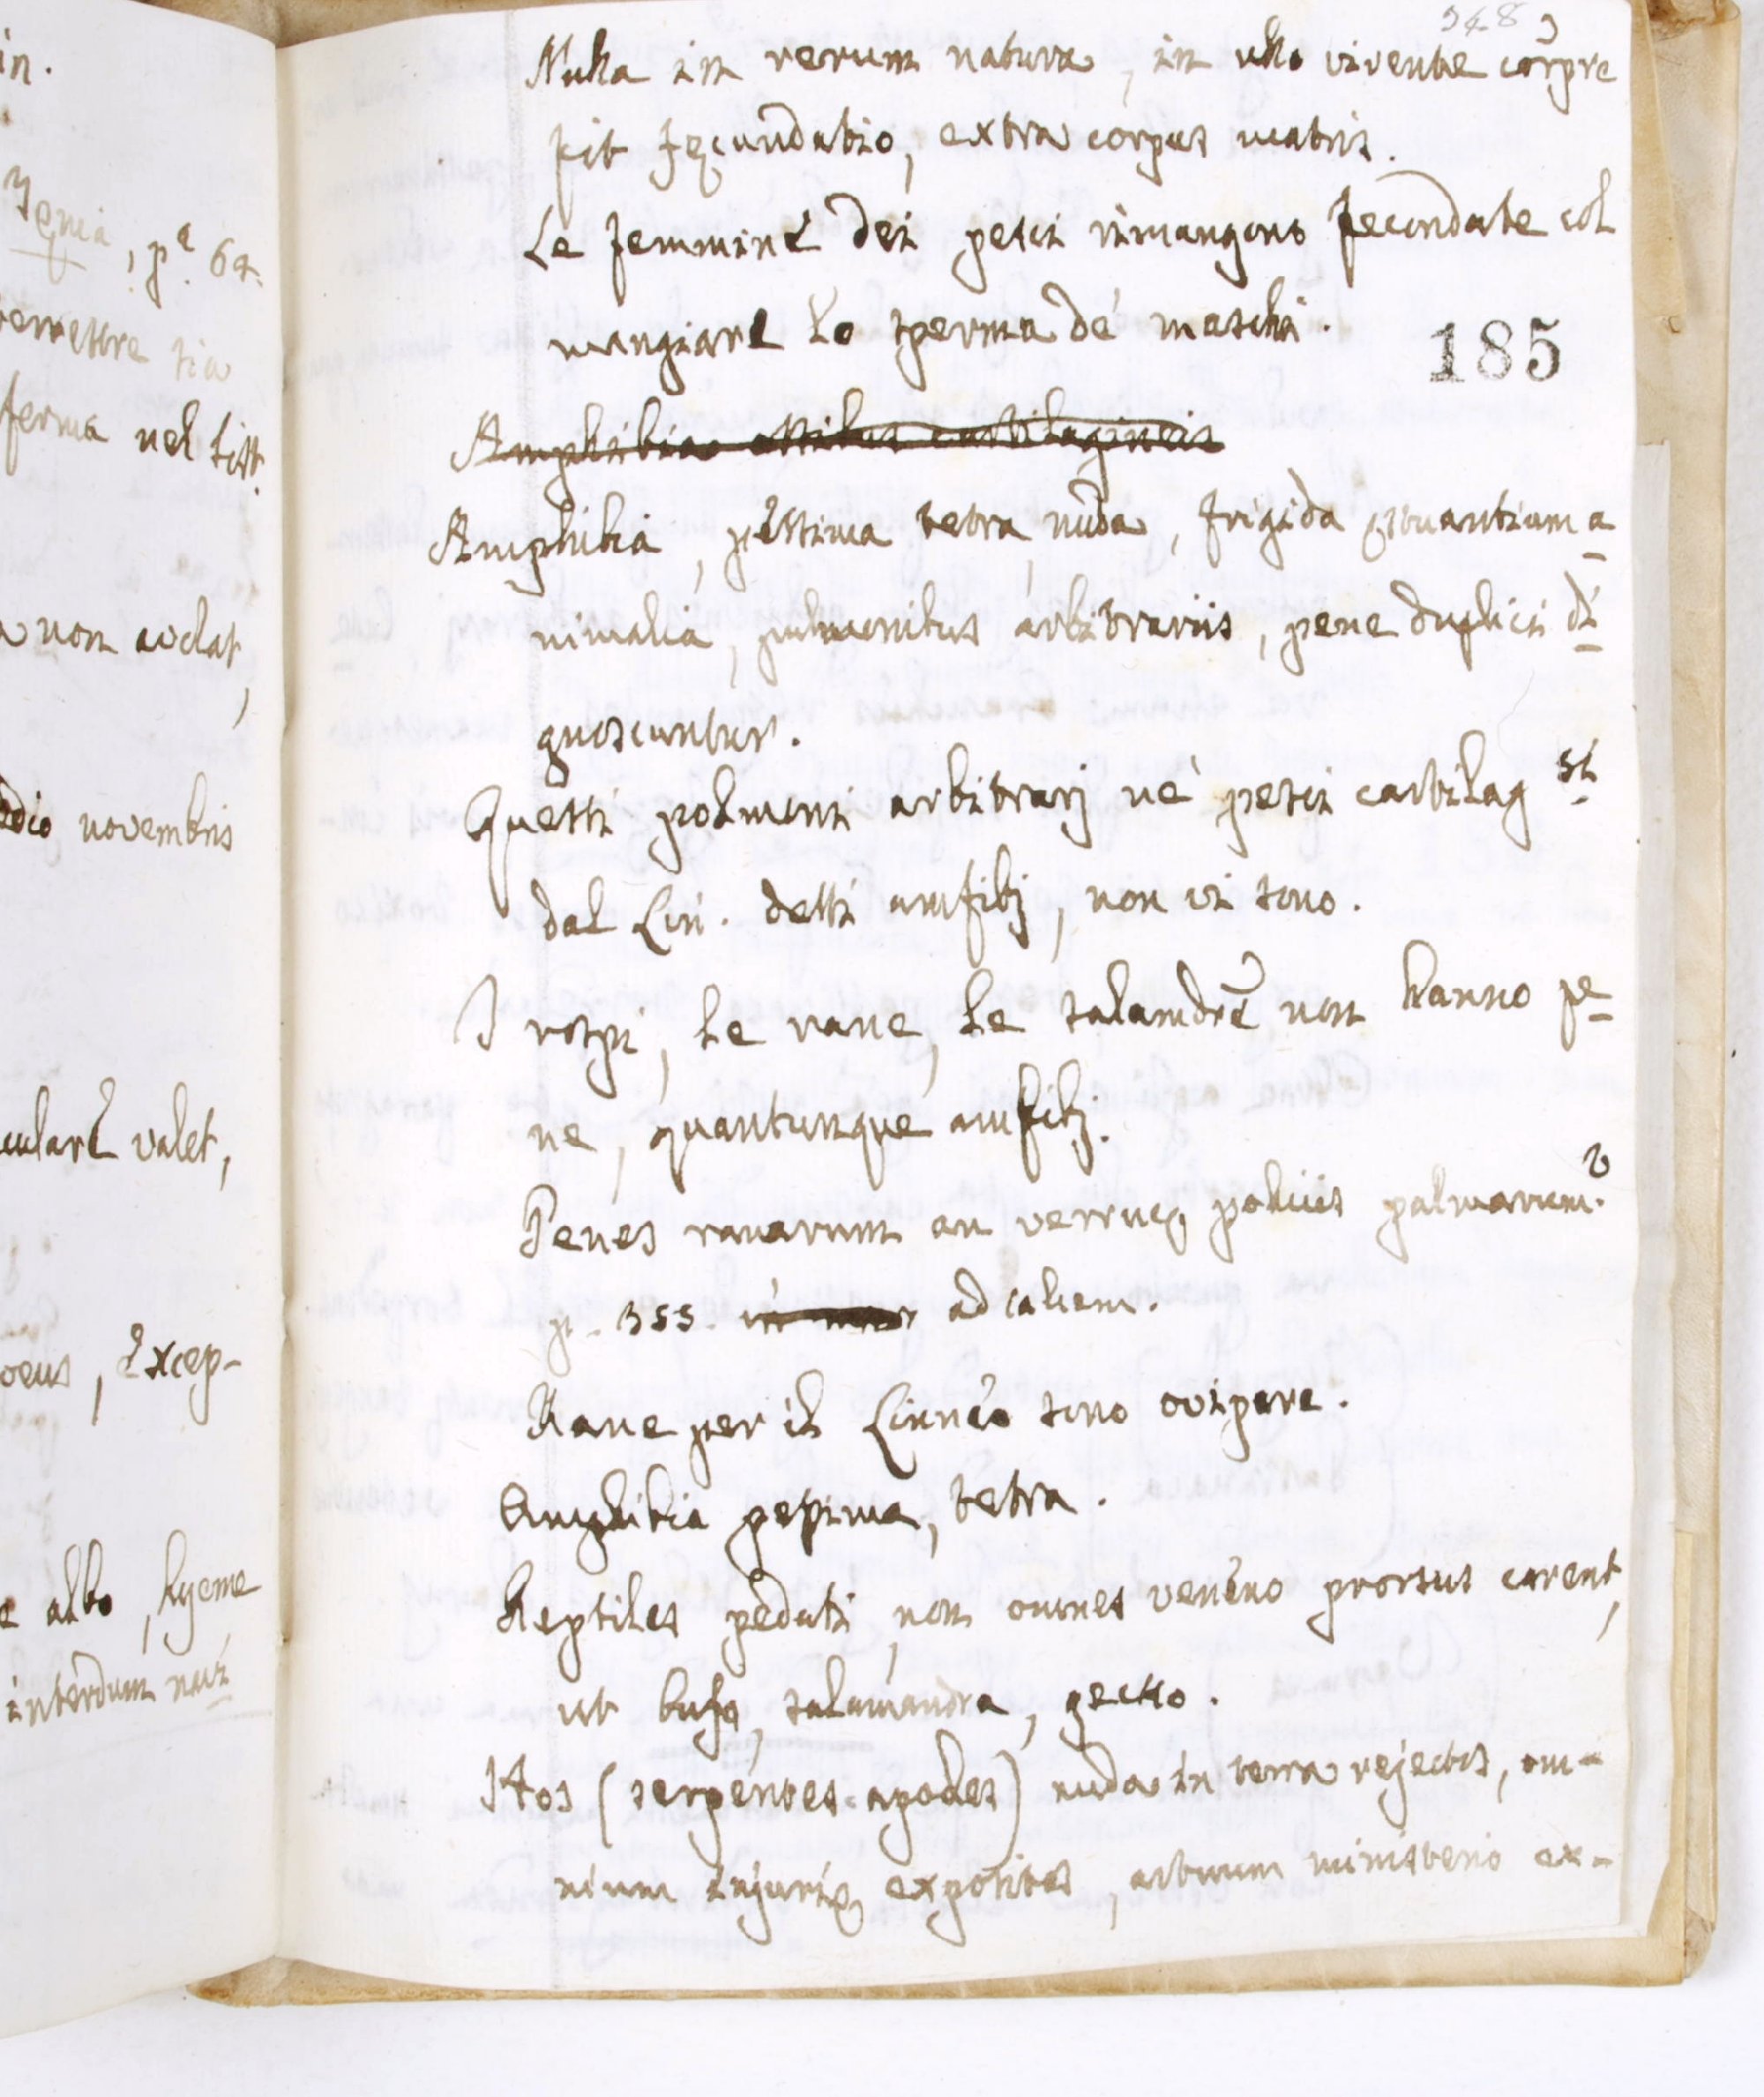 in.
Tenia, p.ª 64.
ferma nel sist.
non avelat,
novembris
culare valet,
, excep-
e albo, hyeme
interdum nui-
348
Nulla in rerum natura, in ullo vivente corpre
fit fęcundatio, extra corpus matris.
Le femmine dei pesci rimangono fecondate col
mangiare lo sperma dé maschi.
185
Amphibia ossibus cartilagineis
Amphibia, pessima tetra nuda, frigida a-
nimalia, pulmonibus arbitrariis, pene duplici di-
gnoscuntur.
Questi polmoni arbitrarj né pesci cartilag.si
dal Lin. detti amfibj, non vi sono.
I rospi, le rane, le salamdre non hanno pe-
ne, quantunque amfibj.
Penes ranarum an verrucę pollicis palmarum?
p. 355. ad calcem.
Rane per il Linneo sono ovipare.
Amphibia pessima, tetra.
Reptiles pedati, non omnes veneno prorsus carent,
ut bufo, salamandra, gecko.
Hos (serpentes apodes) nuda in terra rejectos, om-
nium injurię expositos, artuum ministerio ex-